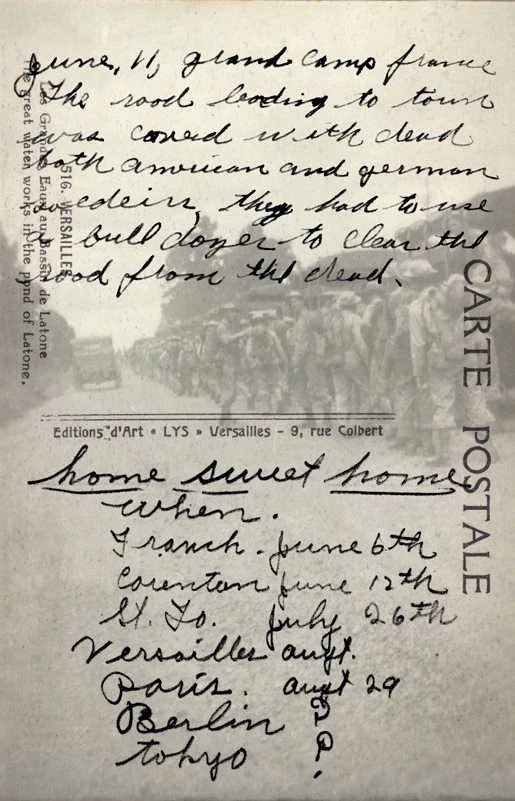 June, 11, grand camp france
The rood leoding to town
was covred with dead
both american and german
they had to use
bull dozer to clear the
rood from the dead.
516. VERSAILLES
Les Grandes Eaux au Bassin de Latone
The great water works in the pond of Latone.
CARTE POSTALE
Editions d'Art « LYS » Versailles - 9, rue Colbert
home sweet home
when.
Franch. June 6th
Carentan June 12th
St. Lo. July 26th
Versailles augt.
Paris. augt 29
Berlin ?
tokyo ?